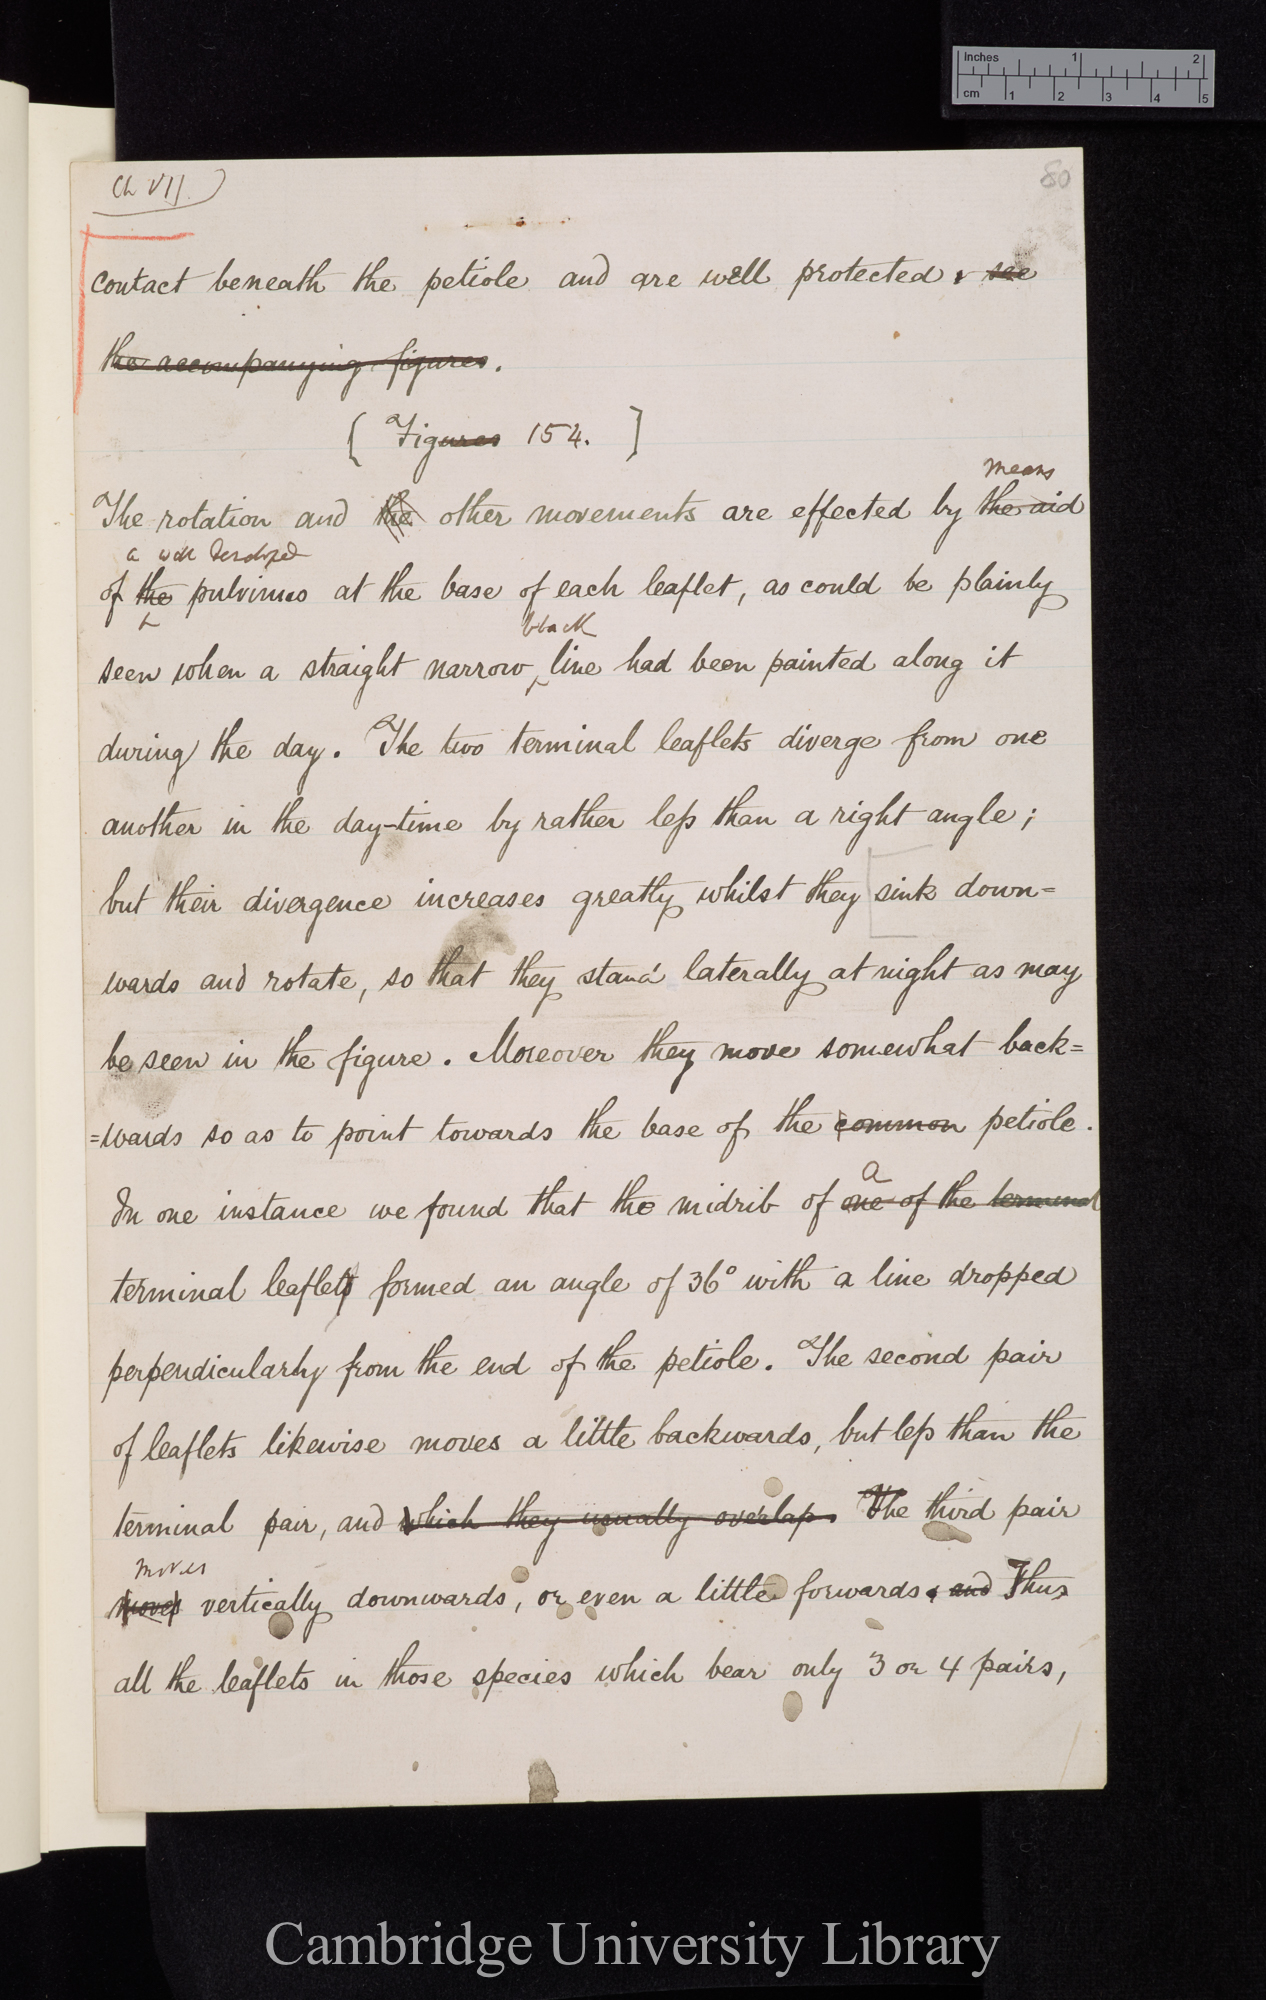 Inches 1 2
cm 1 2 3 4 5
Ch VII.)
80
contact beneath the petiole and are well protected. see
the accompanying figures.
[ Figures 154. ]
means
The rotation and the other movements are effected by the aid
a well developed
of the pulvinus at the base of each leaflet, as could be plainly
black
seen when a straight narrow line had been painted along it
during the day. The two terminal leaflets diverge from one
another in the day-time by rather less than a right angle;
but their divergence increases greatly whilst they [sink down=
wards and rotate, so that they stand laterally at night as may
be seen in the figure. Moreover they move somewhat back=
=wards so as to point towards the base of the common petiole.
a
In one instance we found that the midrib of one of the terminal
terminal leaflets formed an angle of 36° with a line dropped
perpendicularly from the end of the petiole. The second pair
of leaflets likewise moves a little backwards, but less than the
terminal pair, and which they usually overlap. The third pair
moves
moves vertically downwards, or even a little forwards. and Thus
all the leaflets in those species which bear only 3 or 4 pairs,
Cambridge University Library